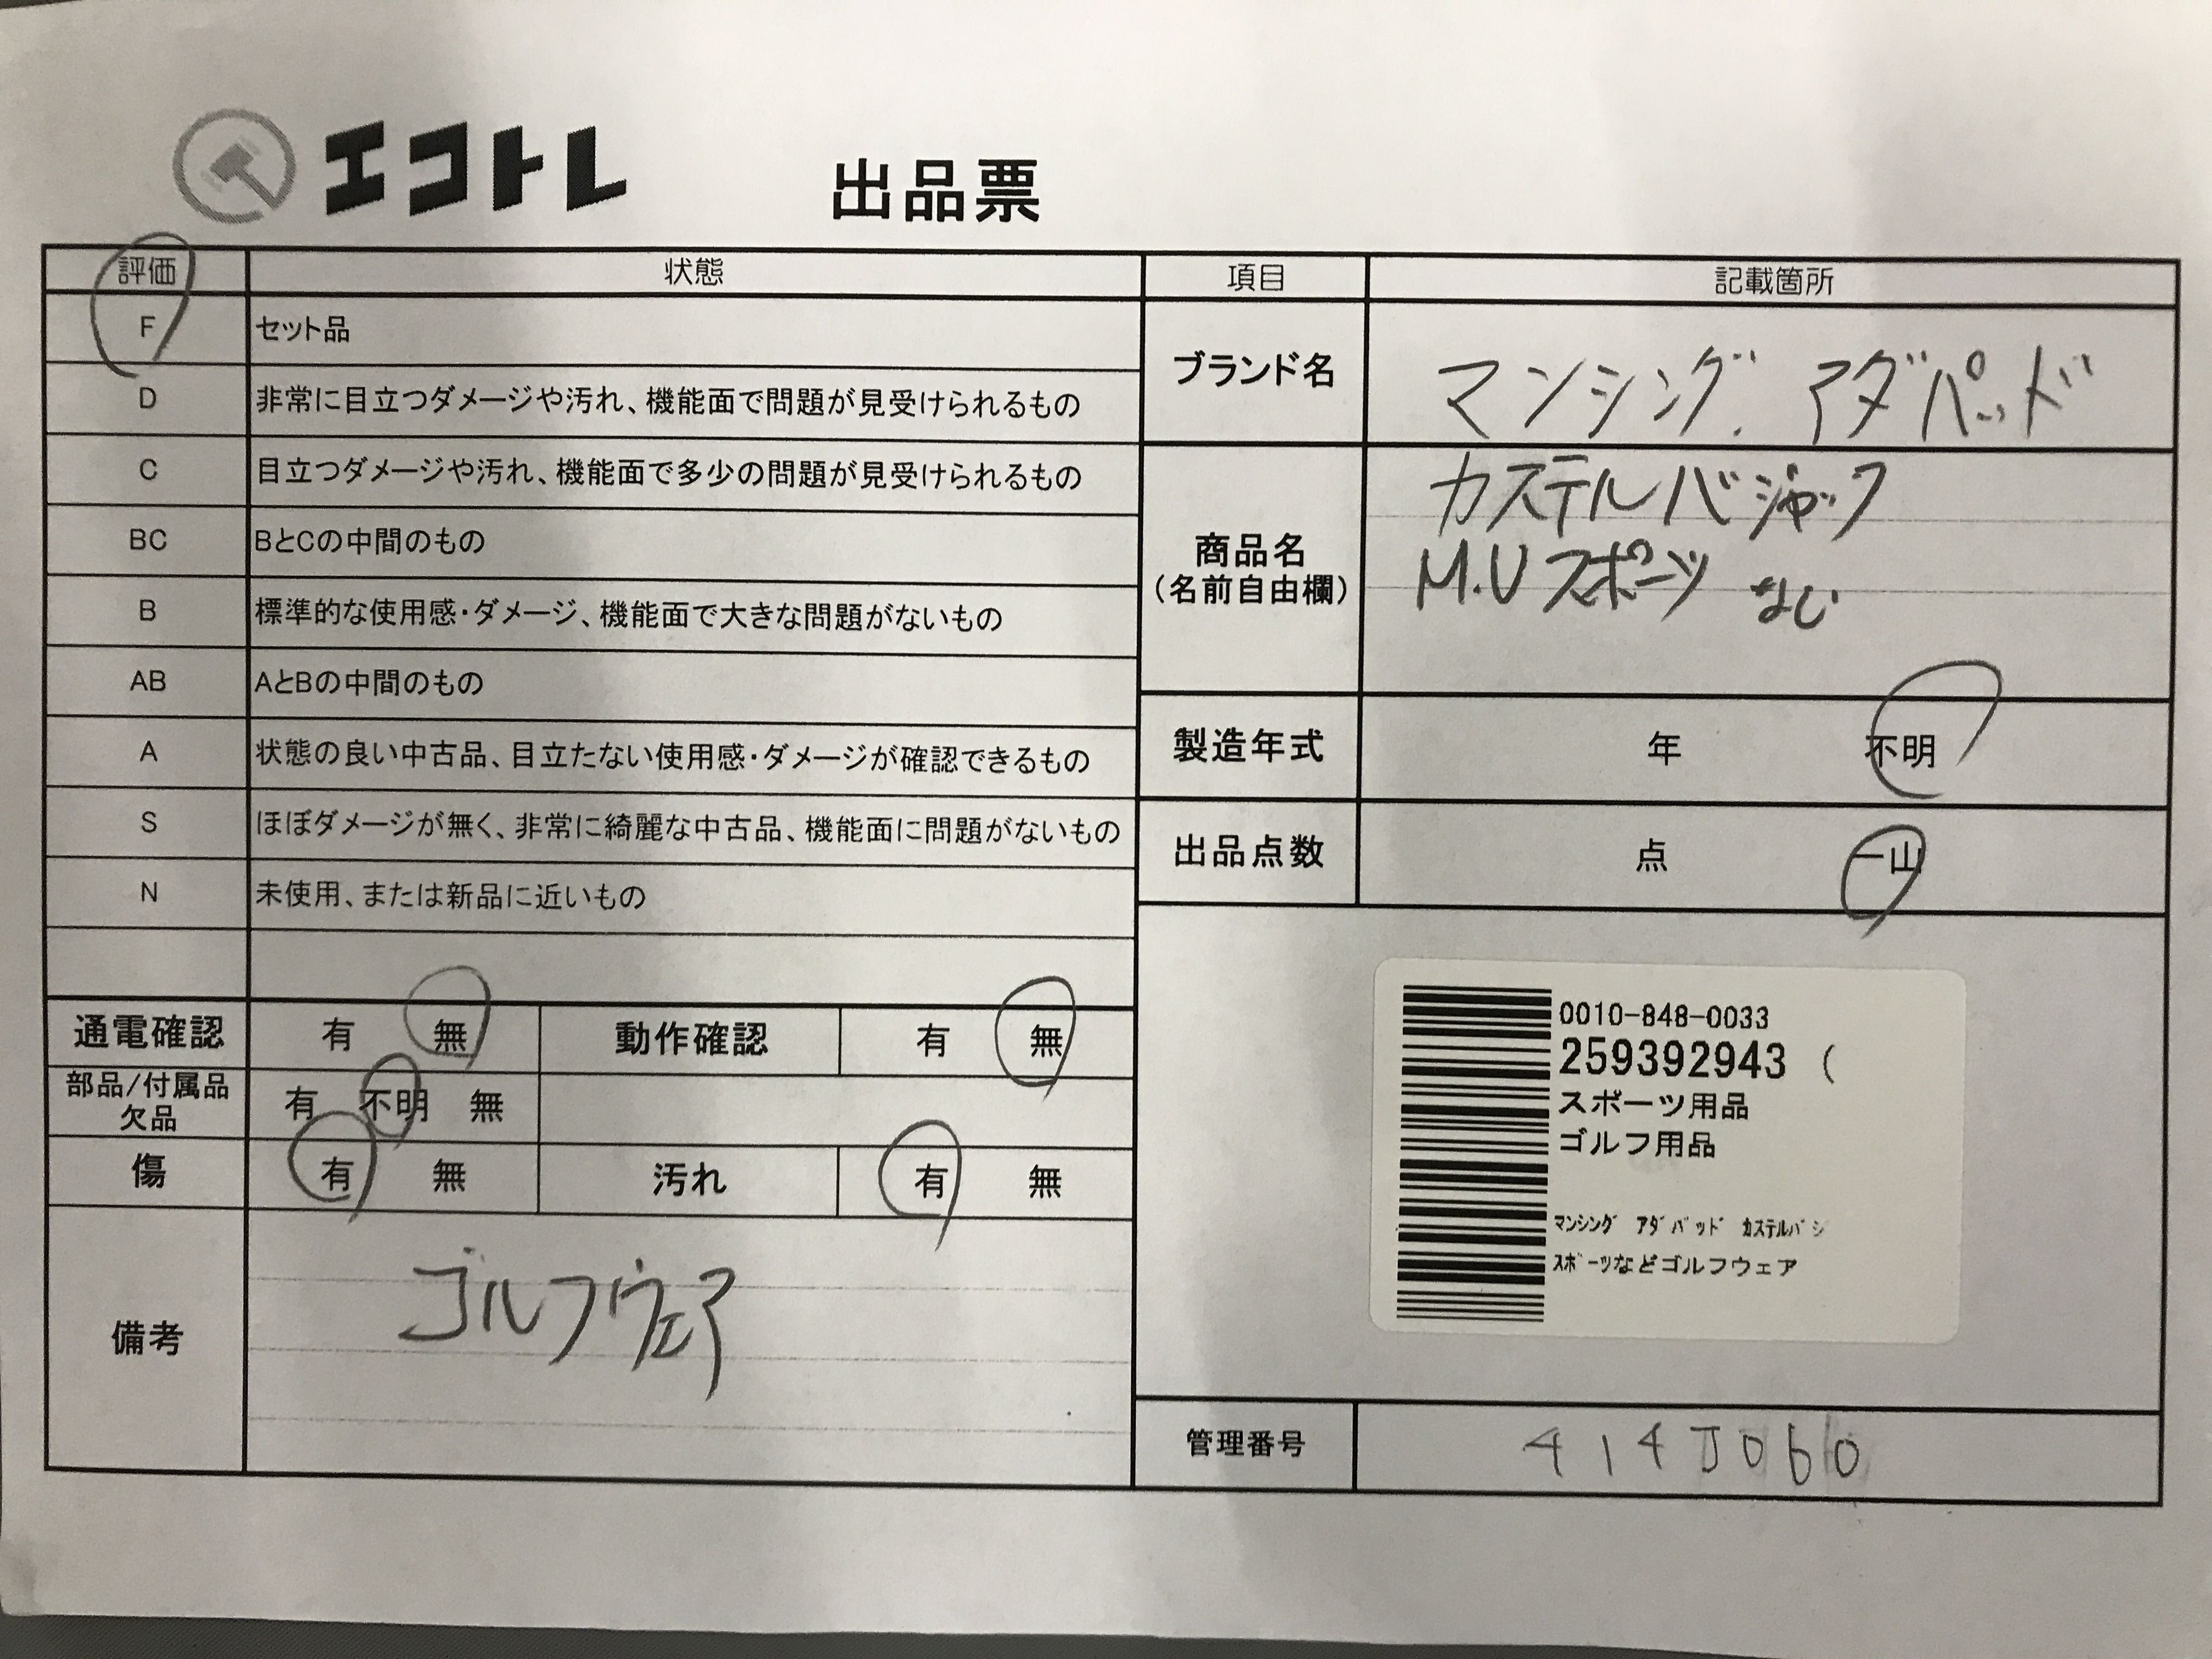 エコトレ 出品票
評価 状態
F セット品
D 非常に目立つダメージや汚れ、機能面で問題が見受けられるもの
C 目立つダメージや汚れ、機能面で多少の問題が見受けられるもの
BC BとCの中間のもの
B 標準的な使用感・ダメージ、機能面で大きな問題がないもの
AB AとBの中間のもの
A 状態の良い中古品、目立たない使用感・ダメージが確認できるもの
S ほぼダメージが無く、非常に綺麗な中古品、機能面に問題がないもの
N 未使用、または新品に近いもの
通電確認 有 無 動作確認 有 無
部品/付属品
欠品 有 不明 無
傷 有 無 汚れ 有 無
備考 ゴルフウェア
項目 記載箇所
ブランド名 マンシング. アダパッド
商品名
(名前自由欄)
カステルバジャック
M.Uスポーツ なし
製造年式 年 不明
出品点数 点 一山
0010-848-0033
259392943 (
スポーツ用品
ゴルフ用品
マンシング アダバッド カステルバジ
スポーツなどゴルフウェア
管理番号 414J060